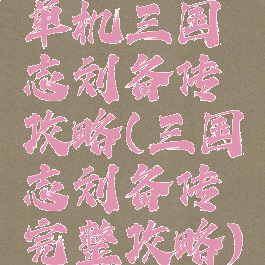 单机三国
志刘备传
攻略(三国
志刘备传
完整攻略)